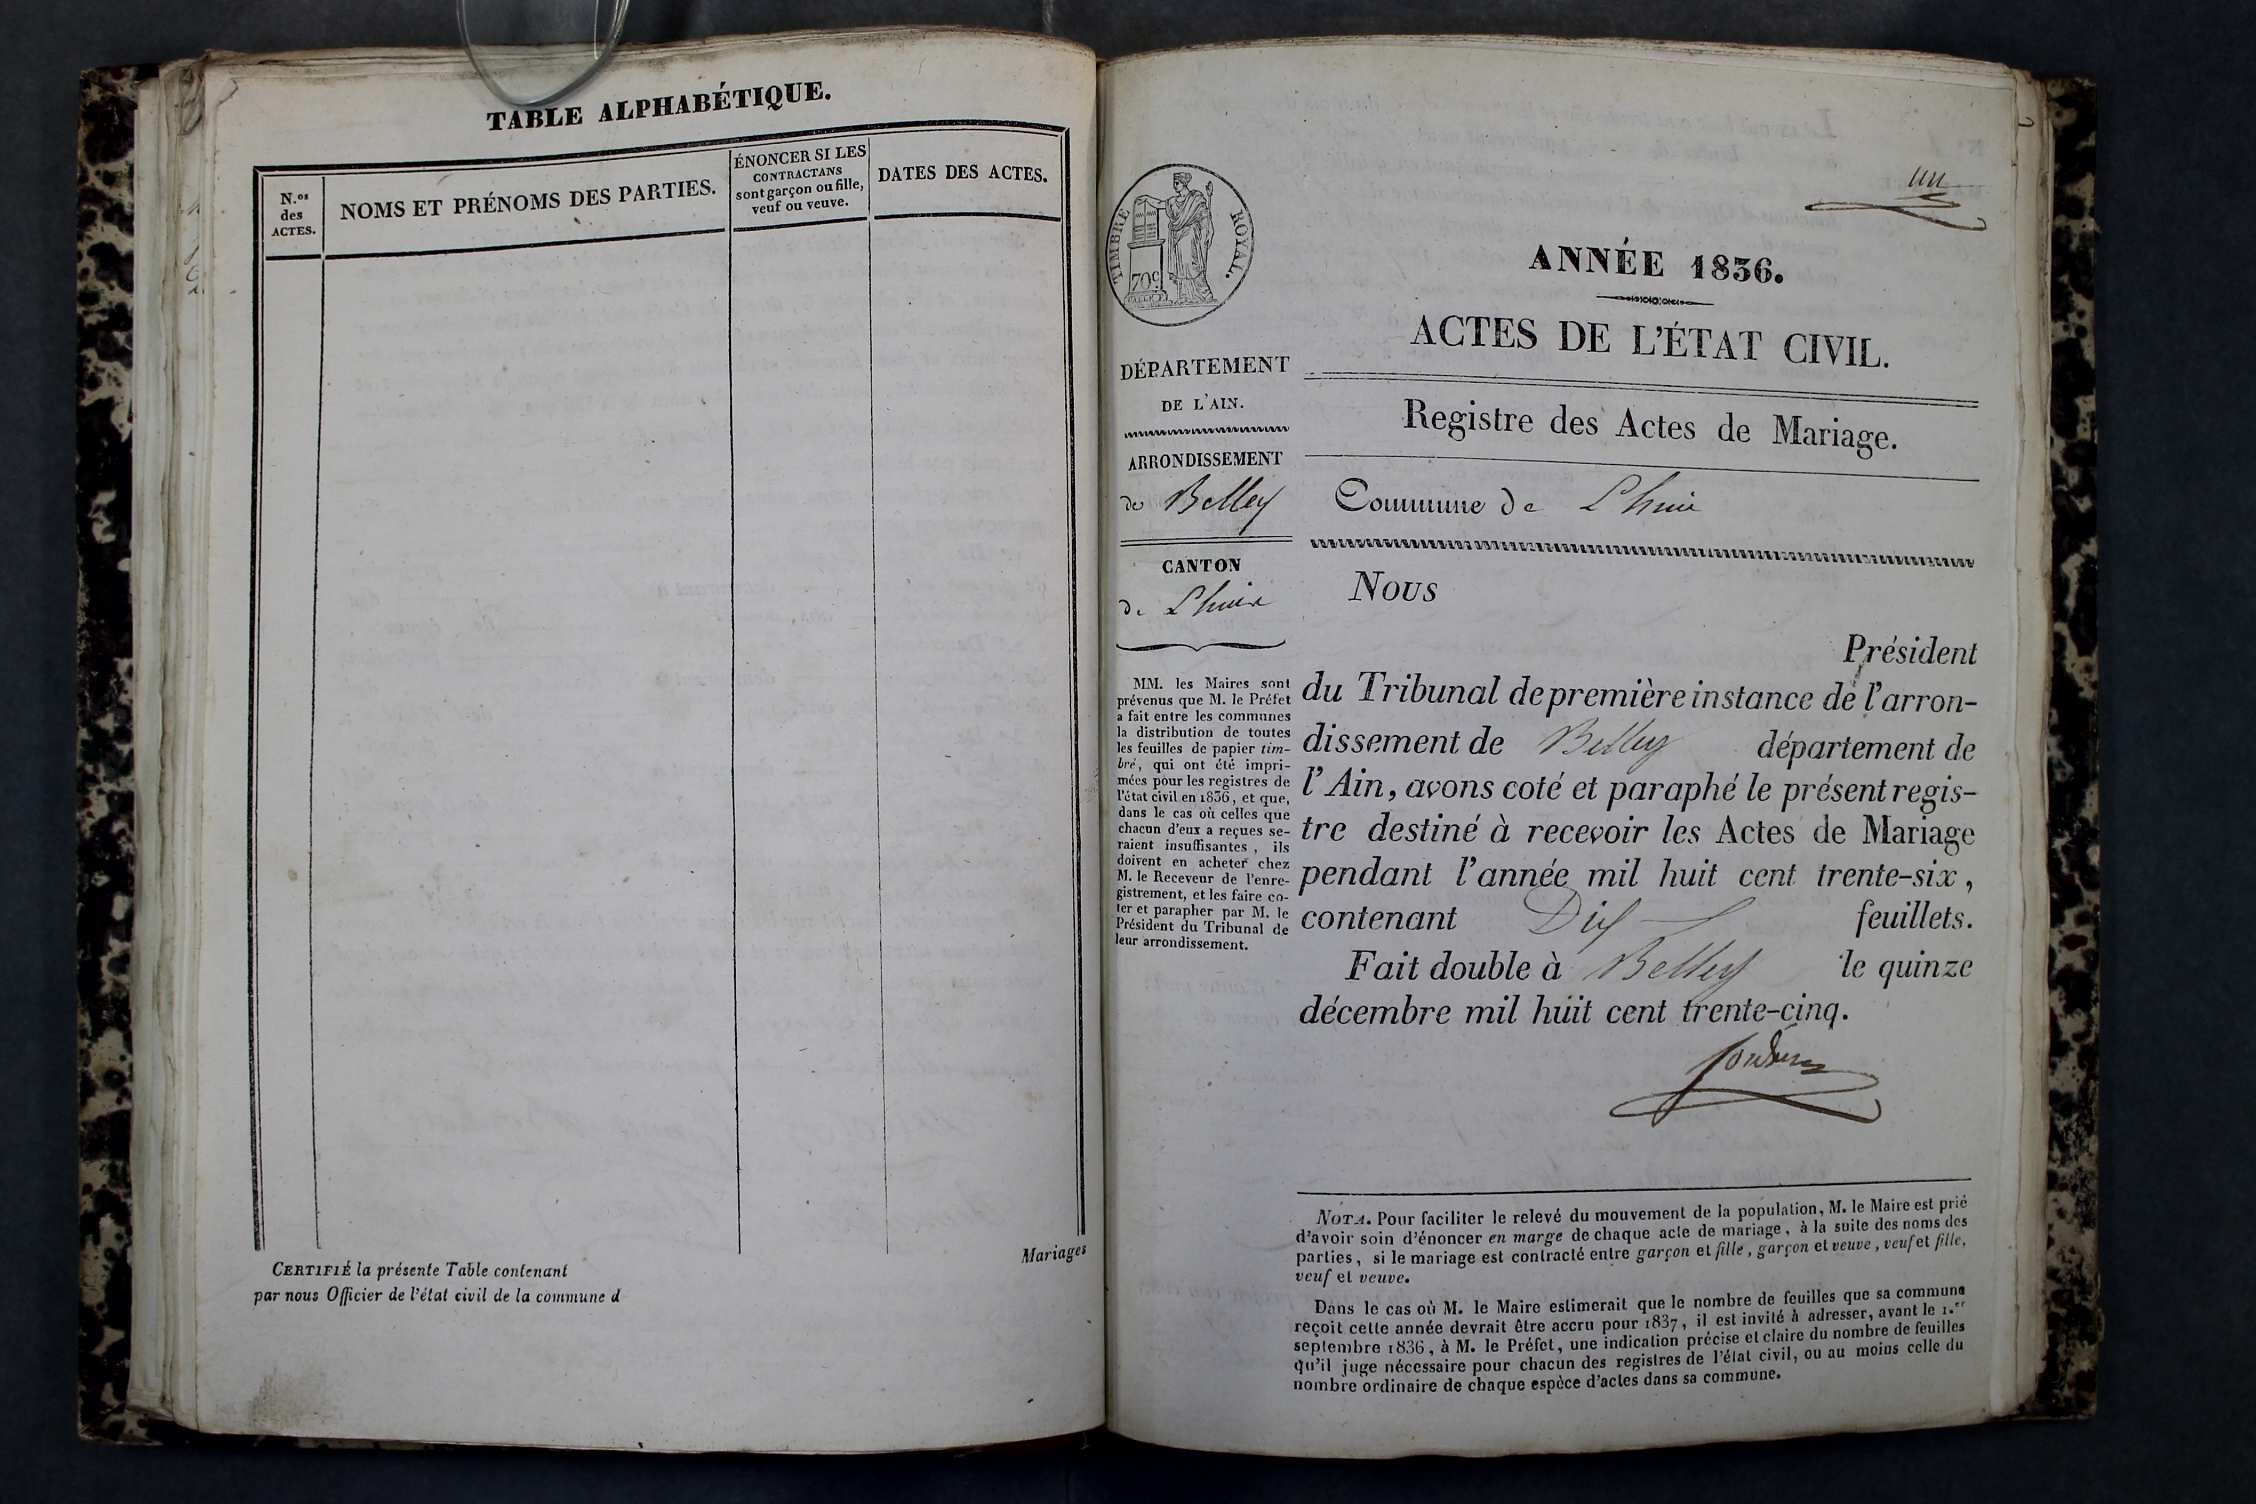 TABLE ALPHABÉTIQUE.
N.os
des
ACTES.
NOMS ET PRÉNOMS DES PARTIES.
ÉNONCER SI LES
CONTRACTANS
sont garçon ou fille,
veuf ou veuve.
DATES DES ACTES.
Mariages
CERTIFIÉ la présente Table contenant
par nous Officier de l'état civil de la commune d
un
TIMBRE ROYAL.
70c
ANNÉE 1836.
ACTES DE L'ÉTAT CIVIL.
Registre des Actes de Mariage.
Commune de Lhuis
DÉPARTEMENT
DE L'AIN.
ARRONDISSEMENT
de Belley
CANTON
de Lhuis
MM. les Maires sont
prévenus que M. le Préfet
a fait entre les communes
la distribution de toutes
les feuilles de papier tim-
bré, qui ont été impri-
mées pour les registres de
l'état civil en 1836, et que,
dans le cas où celles que
chacun d'eux a reçues se-
raient insuffisantes, ils
doivent en acheter chez
M. le Receveur de l'enre-
gistrement, et les faire co-
ter et parapher par M. le
Président du Tribunal de
leur arrondissement.
Nous
Président
du Tribunal de première instance de l'arron-
dissement de Belley département de
l'Ain, avons coté et paraphé le présent regis-
tre destiné à recevoir les Actes de Mariage
pendant l'année mil huit cent trente-six,
contenant Dix feuillets.
Fait double à Belley le quinze
décembre mil huit cent trente-cinq.
NOTA. Pour faciliter le relevé du mouvement de la population, M. le Maire est prié
d'avoir soin d'énoncer en marge de chaque acte de mariage, à la suite des noms des
parties, si le mariage est contracté entre garçon et fille, garçon et veuve, veuf et fille,
veuf et veuve.
Dans le cas où M. le Maire estimerait que le nombre de feuilles que sa commune
reçoit cette année devrait être accru pour 1837, il est invité à adresser, avant le 1.er
septembre 1836, à M. le Préfet, une indication précise et claire du nombre de feuilles
qu'il juge nécessaire pour chacun des registres de l'état civil, ou au moins celle du
nombre ordinaire de chaque espèce d'actes dans sa commune.